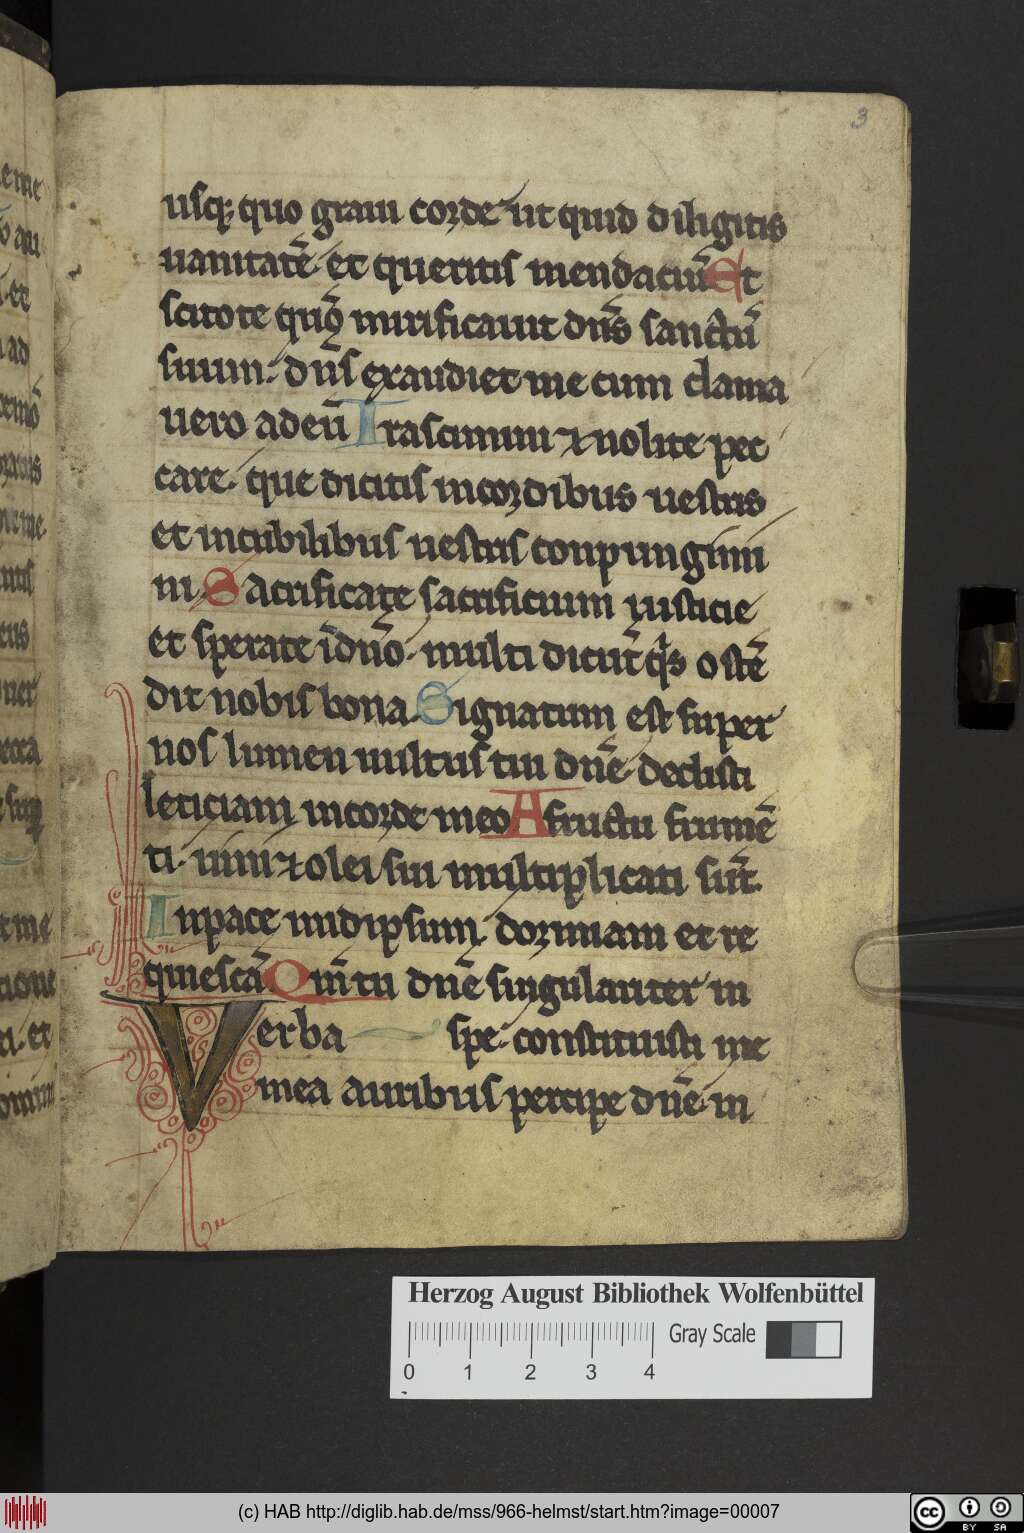 3
usq; quo graui corde ut quid diligitis
uanitatē et queritis mendaciū Et
scitote quō mirificauit dn̄s sanctū
suum. dn̄s exaudiet me cum clama
uero ad eū Irascimini ⁊ nolite pec
care. que dicitis in cordibus uestris
et in cubilibus uestris conpungimi
ni Sacrificate sacrificium iusticie
et sperate ī dn̄o. multi dicūt q̄s ostē
dit nobis bona. Signatum est super
nos lumen uultus tui dn̄e. dedisti
leticiam in corde meo A fructu frumē
ti. uini ⁊ olei sui multiplicati sūt.
In pace in idipsum dormiam et re
quiescā Qm̄ tu dn̄e singulariter in
Verba spe. constituisti me
mea auribus percipe dn̄e. in
Herzog August Bibliothek Wolfenbüttel
Gray Scale
0 1 2 3 4
(c) HAB http://diglib.hab.de/mss/966-helmst/start.htm?image=00007
cc BY SA